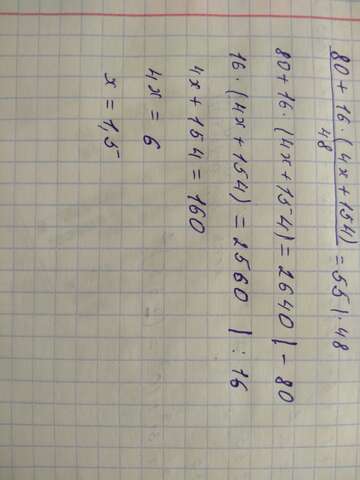 80 + 16 · (4x + 154)
48
= 55 | · 48
80 + 16 · (4x + 154) = 2640 | - 80
16 · (4x + 154) = 2560 | : 16
4x + 154 = 160
4x = 6
x = 1,5